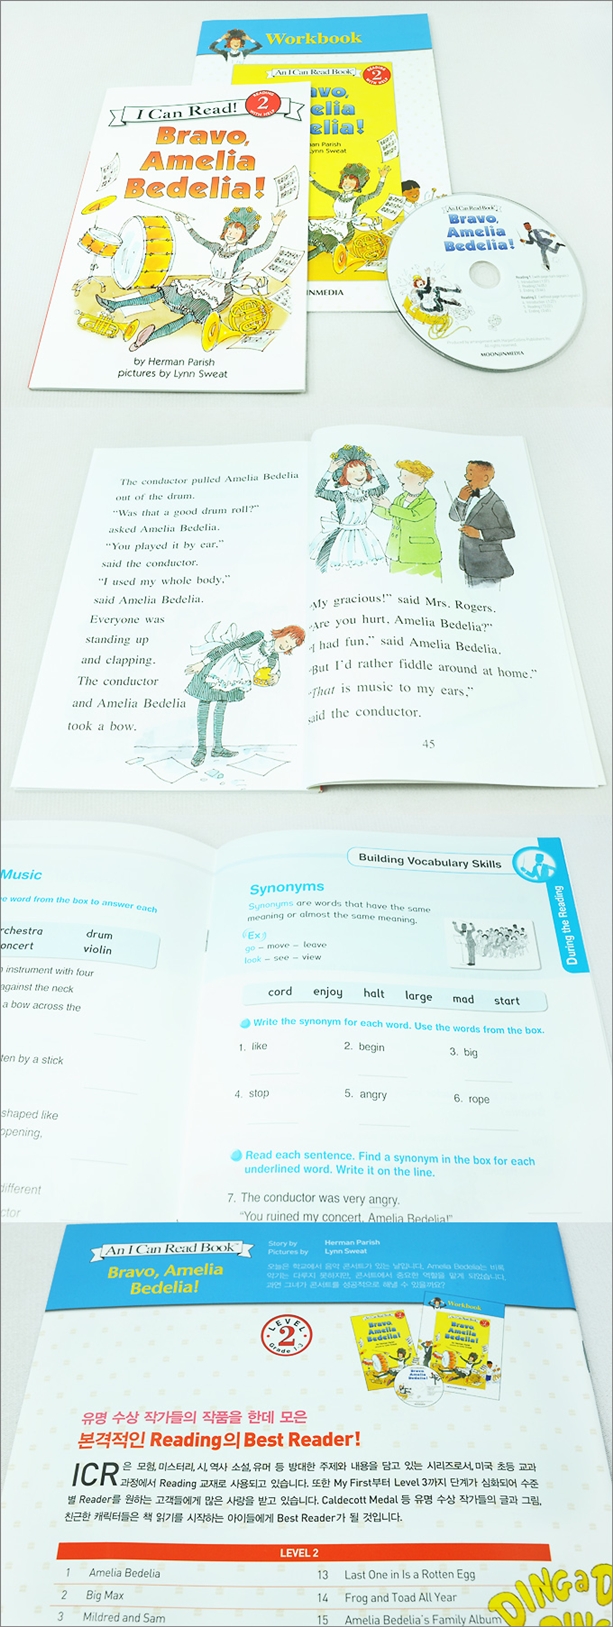 Workbook
An I Can Read Book
READING 2 WITH HELP
I Can Read!
READING 2 WITH HELP
Bravo,
Amelia
Bedelia!
avo,
elia
elia!
man Parish
Lynn Sweat
by Herman Parish
pictures by Lynn Sweat
NMEDIA
An I Can Read Book
Bravo,
Amelia
Bedelia!
MOONJINMEDIA
The conductor pulled Amelia Bedelia
out of the drum.
"Was that a good drum roll?"
asked Amelia Bedelia.
"You played it by ear,"
said the conductor.
"I used my whole body,"
said Amelia Bedelia.
Everyone was
standing up
and clapping.
The conductor
and Amelia Bedelia
took a bow.
"My gracious!" said Mrs. Rogers.
"Are you hurt, Amelia Bedelia?"
"I had fun," said Amelia Bedelia.
"But I'd rather fiddle around at home."
"That is music to my ears,"
said the conductor.
45
Music
e word from the box to answer each
rchestra drum
oncert violin
instrument with four
against the neck
a bow across the
ten by a stick
shaped like
opening,
different
ctor
Building Vocabulary Skills
During the Reading
Synonyms
Synonyms are words that have the same
meaning or almost the same meaning.
(Ex)
go – move – leave
look – see – view
cord enjoy halt large mad start
Write the synonym for each word. Use the words from the box.
1. like 2. begin 3. big
4. stop 5. angry 6. rope
Read each sentence. Find a synonym in the box for each
underlined word. Write it on the line.
7. The conductor was very angry.
"You ruined my concert, Amelia Bedelia!"
An I Can Read Book
Bravo, Amelia
Bedelia!
Story by Herman Parish
Pictures by Lynn Sweat
오늘은 학교에서 음악 콘서트가 있는 날입니다. Amelia Bedelia는 비록
악기는 다루지 못하지만, 콘서트에서 중요한 역할을 맡게 되었습니다.
과연 그녀가 콘서트를 성공적으로 해낼 수 있을까요?
LEVEL
2
Grade 1-3
Workbook
Bravo,
Amelia
Bedelia!
Bravo,
Amelia
Bedelia!
유명 수상 작가들의 작품을 한데 모은
본격적인 Reading의 Best Reader!
ICR은 모험, 미스터리, 시, 역사 소설, 유머 등 방대한 주제와 내용을 담고 있는 시리즈로서, 미국 초등 교과
과정에서 Reading 교재로 사용되고 있습니다. 또한 My First부터 Level 3까지 단계가 심화되어 수준
별 Reader를 원하는 고객들에게 많은 사랑을 받고 있습니다. Caldecott Medal 등 유명 수상 작가들의 글과 그림,
친근한 캐릭터들은 책 읽기를 시작하는 아이들에게 Best Reader가 될 것입니다.
LEVEL 2
1 Amelia Bedelia 13 Last One in Is a Rotten Egg
2 Big Max 14 Frog and Toad All Year
3 Mildred and Sam 15 Amelia Bedelia's Family Album
DING a D
DING